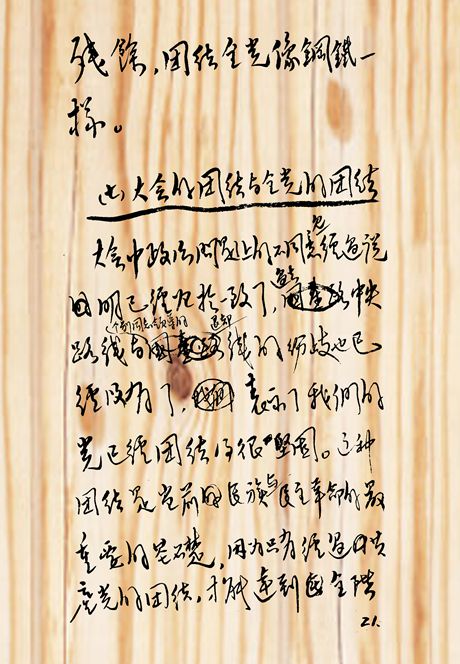 残餘,团结全党像鋼鐵一
樣。
大会的团结与全党的团结
大会中政治問題上的不同意見經過説
明已經归於一致了,过去中央
路线与个别同志领导的退却路线的分歧也已
經没有了,表示了我們的
党已經团结得很坚固。这种
团结是当前民族与民主革命的最
重要的基礎,因为只有經過共
產党的团结,才能達到全階
21.